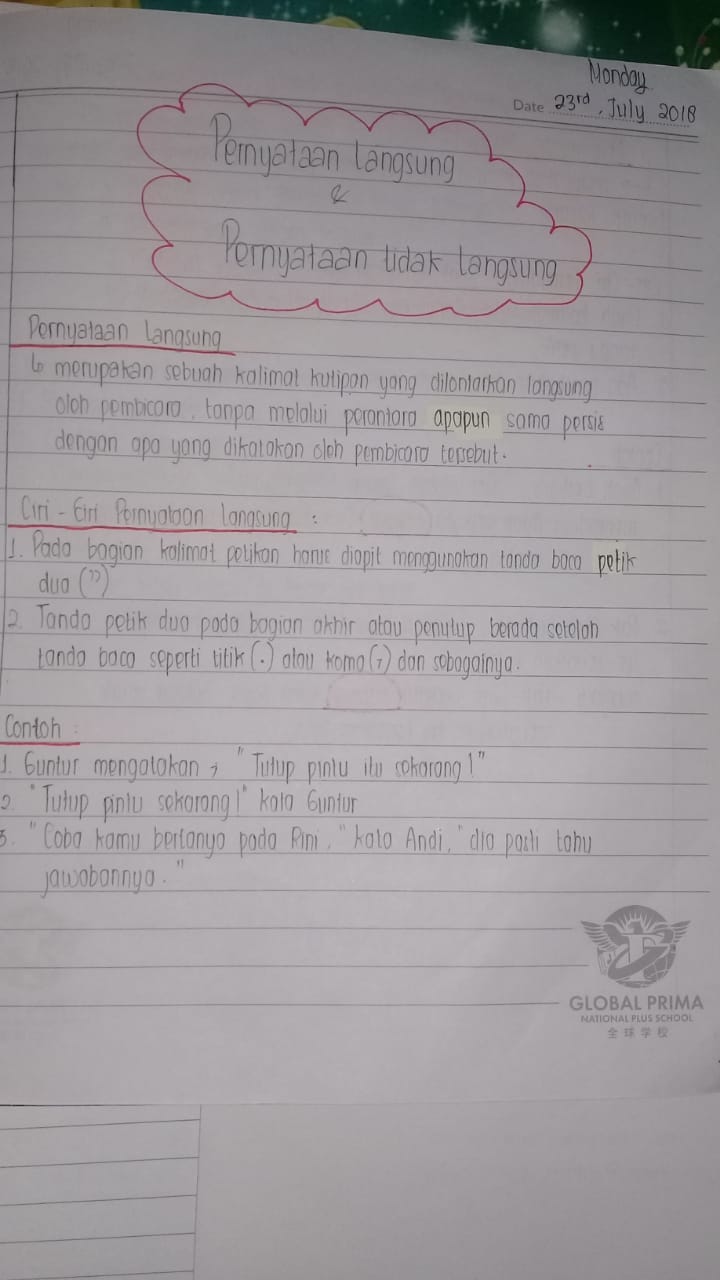 Monday
Date 23rd, July 2018
Pernyataan langsung
&
Pernyataan tidak langsung
Pernyataan langsung
↳ merupakan sebuah kalimat kutipan yang dilontarkan langsung
oleh pembicara, tanpa melalui perantara apapun sama persis
dengan apa yang dikatakan oleh pembicara tersebut.
Ciri - Ciri Pernyataan langsung :
1. Pada bagian kalimat petikan harus diapit menggunakan tanda baca petik
dua (")
2. Tanda petik dua pada bagian akhir atau penutup berada setelah
tanda baca seperti titik (.) atau koma (,) dan sebagainya.
Contoh :
1. Guntur mengatakan, "Tutup pintu itu sekarang!"
2. "Tutup pintu sekarang!" kata Guntur
3. "Coba kamu bertanya pada Rini," kata Andi, "dia pasti tahu
jawabannya."
GLOBAL PRIMA
NATIONAL PLUS SCHOOL
全球学校